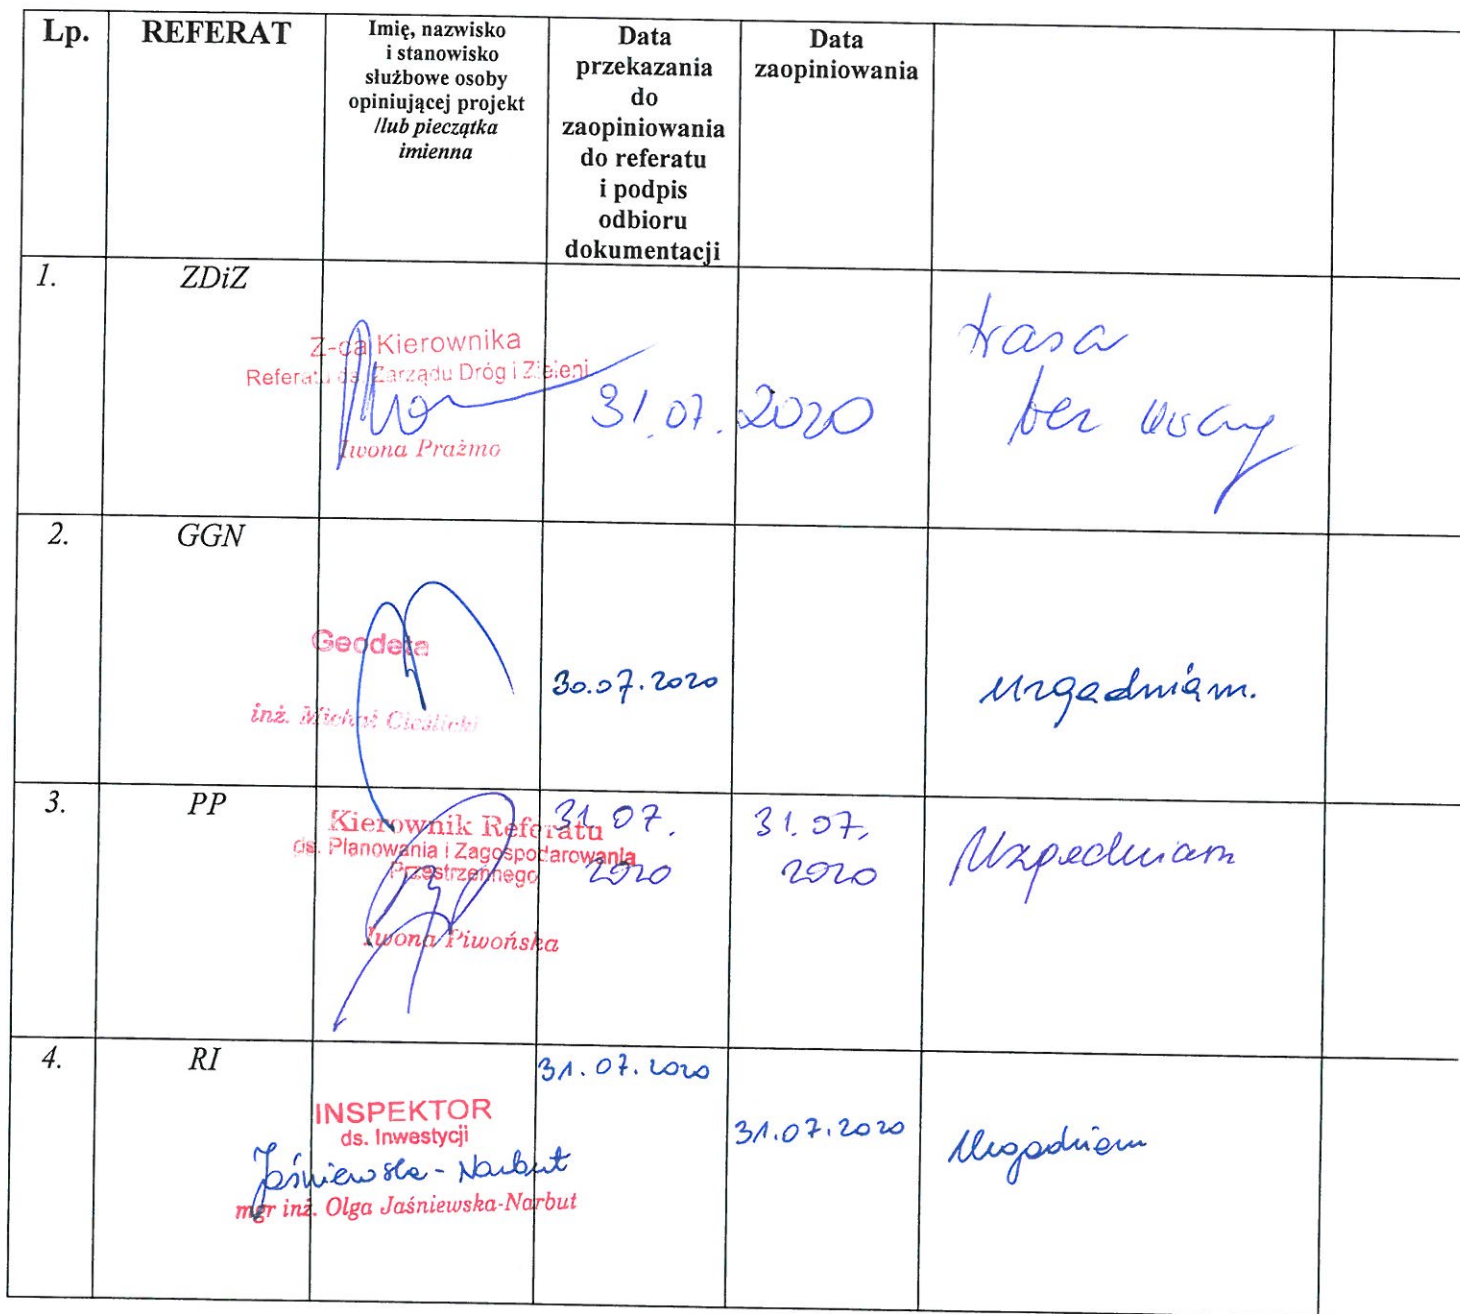 Lp.
REFERAT
Imię, nazwisko
i stanowisko
służbowe osoby
opiniującej projekt
/lub pieczątka
imienna
Data
przekazania
do
zaopiniowania
do referatu
i podpis
odbioru
dokumentacji
Data
zaopiniowania
1.
ZDiZ
Z-ca Kierownika
Referatu ds. Zarządu Dróg i Zieleni
Iwona Prażmo
31.07.2020
trasa
bez uwag
2.
GGN
Geodeta
inż. Michał Cieślicki
30.07.2020
uzgadniam.
3.
PP
Kierownik Referatu
ds. Planowania i Zagospodarowania
Przestrzennego
Iwona Piwońska
31.07.
2020
31.07.
2020
Uzgadniam
4.
RI
INSPEKTOR
ds. Inwestycji
Jaśniewska-Narbut
mgr inż. Olga Jaśniewska-Narbut
31.07.2020
31.07.2020
Uzgadniam